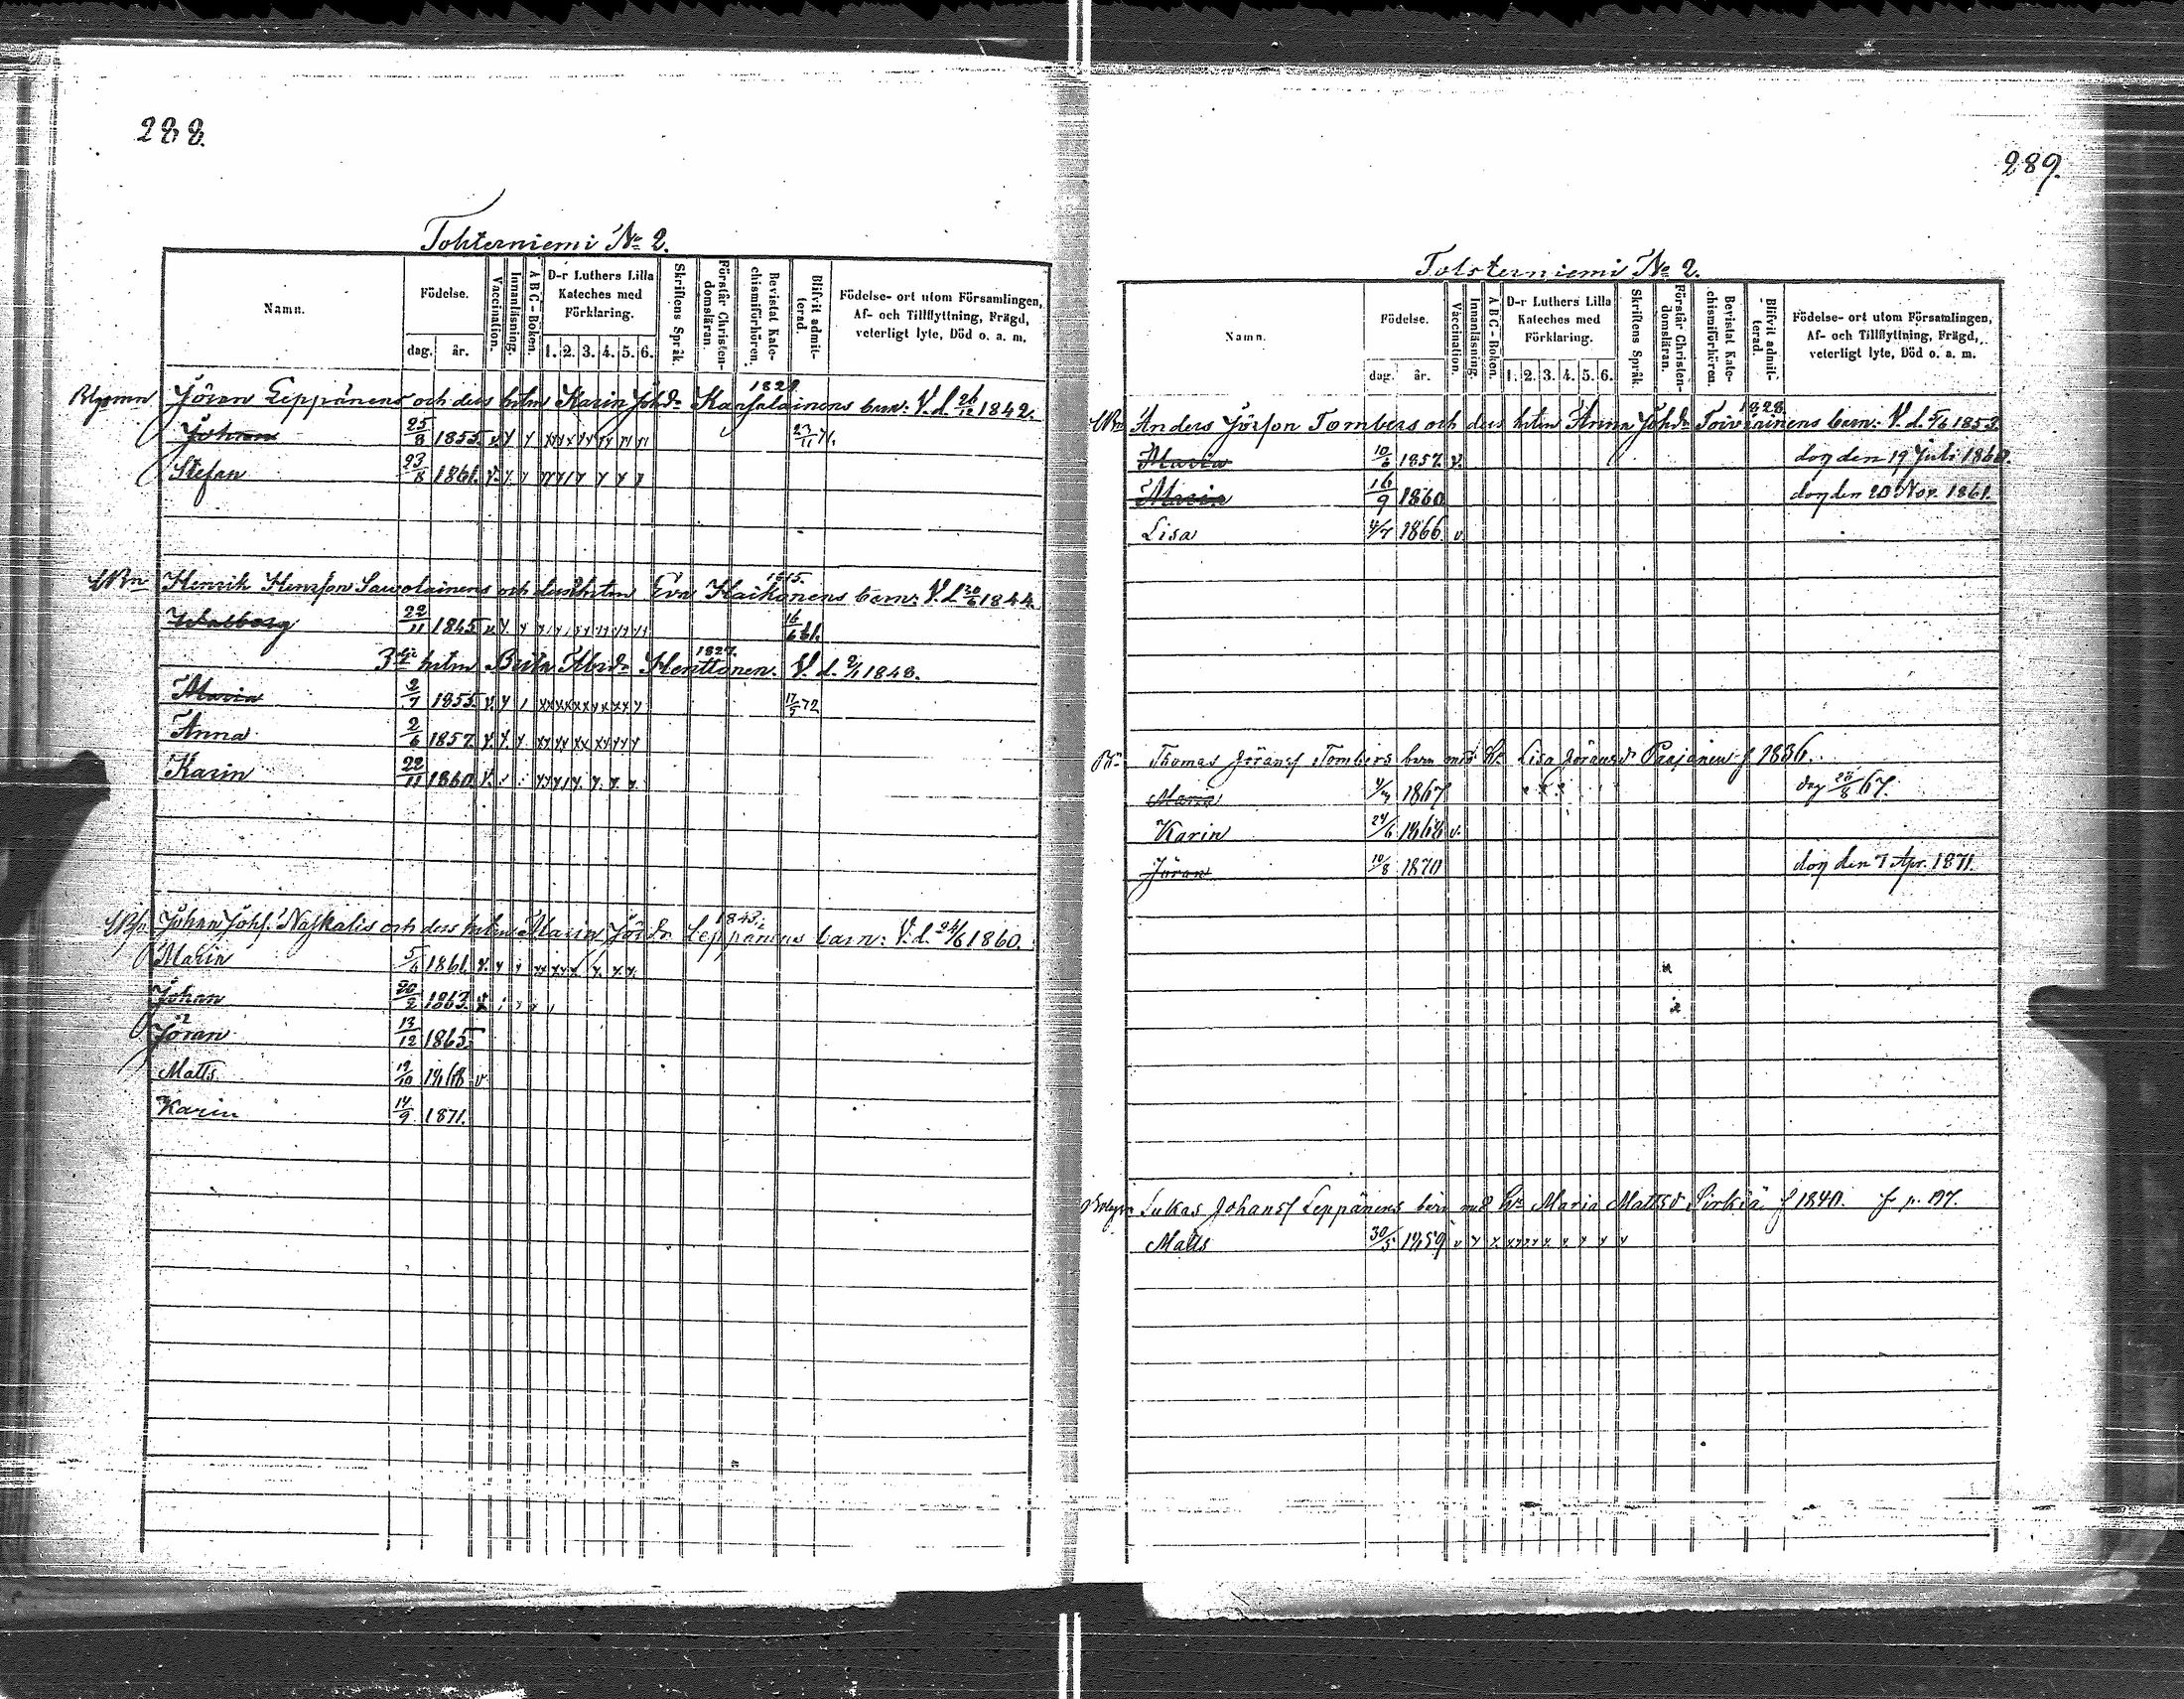 288.
Tohterniemi No 2.
Namn.
Födelse.
dag. år.
Vaccination.
Innanläsning.
A B C - Boken.
D-r Luthers Lilla Kateches med Förklaring.
1. 2. 3. 4. 5. 6.
Skriftens Språk.
Förstår Christen-domsläran.
Bevistat Kate-chismiförhören.
Blifvit admit-terad.
Födelse- ort utom Församlingen,
Af- och Tillflyttning, Frägd,
veterligt lyte, Död o. a. m.
1821.
Jöran Leppänens och dess hstm Karin Johdr Karhalainens barn: V. d. 26/12 1842.
Johan 25/8 1855. v. 23/11 71.
Stefan 23/8 1861. v.
1815.
Henrik Henrson Sawolainens och dess hstm Eva Haikonens barn: V. d. 30/6 1844.
Walborg 22/11 1845 v. 16/6 61.
1827.
3dje hstm Brita Abrdr Henttonen. V. d. 2/1 1848.
Maria 2/7 1855. v. 17/5 72
Anna 2/6 1857. v.
Karin 22/11 1860. v.
1843.
Johan Johs. Naskalis och dess hstm Maria Jördr Leppänens barn: V. d. 24/6 1860.
Maria 5/6 1861. v.
Johan 20/2 1863.
Jöran 13/12 1865
Matts 19/10 1868 v
Karin 14/9 1871.
289.
Tohterniemi No 2.
Namn.
Födelse.
dag. år.
Vaccination.
Innanläsning.
A B C - Boken.
D-r Luthers Lilla Kateches med Förklaring.
1. 2. 3. 4. 5. 6.
Skriftens Språk.
Förstår Christen-domsläran.
Bevistat Kate-chismiförhören.
Blifvit admit-terad.
Födelse- ort utom Församlingen,
Af- och Tillflyttning, Frägd,
veterligt lyte, Död o. a. m.
1828.
Anders Jörson Tombers och dess hstm Anna Johdr Toiviainens barn: V. d. 5/6 1853.
Maria 10/6 1857. v. dog den 19 Juli 1860.
Maria 16/9 1860 dog den 20 Nov. 1861.
Lisa 4/7 1866 v
Thomas Jöranss Tombers barn med h. Lisa Jöransdr Paajanen f 1836.
Maria 4/7 1867 dog 28/8 67.
Karin 24/6 1868 v.
Jöran 10/8 1870 dog den 7 Apr. 1871.
Lukas Johanss Leppänens barn med h. Maria Mattsd Sirkiä f 1840. f p. 197.
Matts 30/5 1859 v